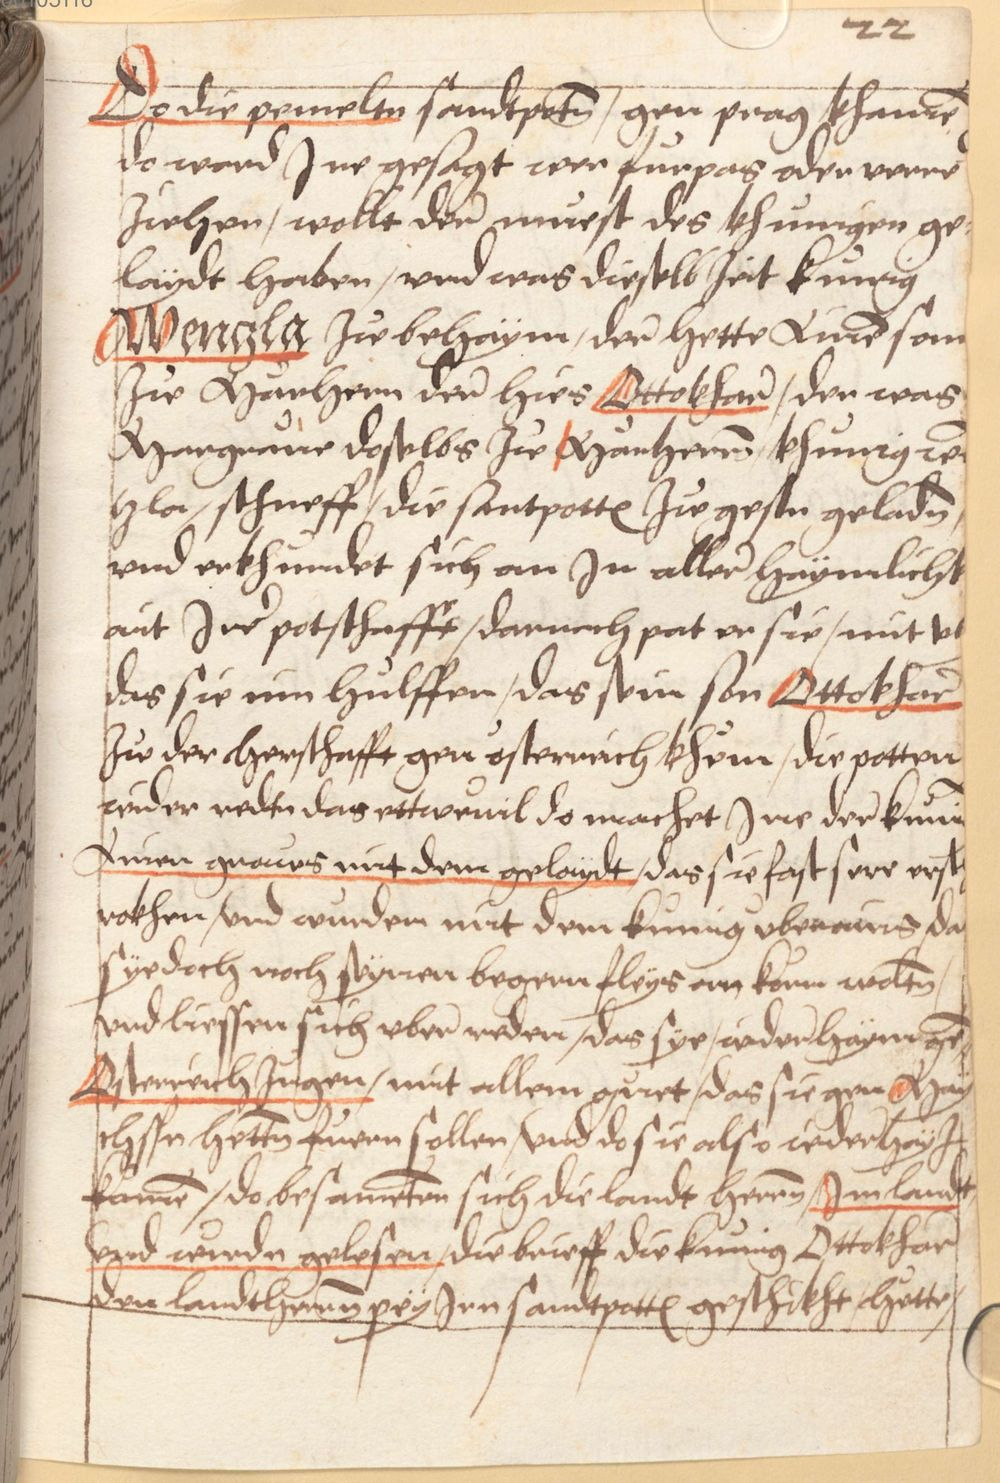 22
Do die pemeltn sandtpotn / gen prag khamen
do ward Ine gesagt wer furpas oder verre
Ziehen / wollt der muest des khunigen ge-
laydt haben / vnd was dieselb Zeit kunig
Wenzla Zu behaym / der hette Ainen son
Zu Marhern der hies Ottokhar / der was
Margraue doselbs Zu Marherrn / khunig wen
tzla / schueff / die santpotten Zu gestn geladn /
vnd erkhundet sich an In aller haymlichk
ait Irer potschafft / darnach pat er sie / mit vl
das sie im hulffen / das sein son Ottokhar
Zu der herschafft gen osterreich khem / die potten
wider redtn das ettweuil do machet Ine der kunig
Ainen graws mit dem gelaydt / das sie fast sere erst
rokhen / vnd wurden mit dem kunig vberains / da
sye doch noch seynen begern fleys an korn woltn /
vnd liessen sich vber reden / das sye / wider haym gen
Osterreich Zugen / mit allem guet / das sie gen May
chssn hettn fuern sollen / vnd do sie also wider haym
kamen / do besamêten sich die landt herrn / Im landt
vnd wurdn gelesen / die brieff die kunig Ottokhar
den landtherrn pey Irn sandtpotten geschikht / hette /